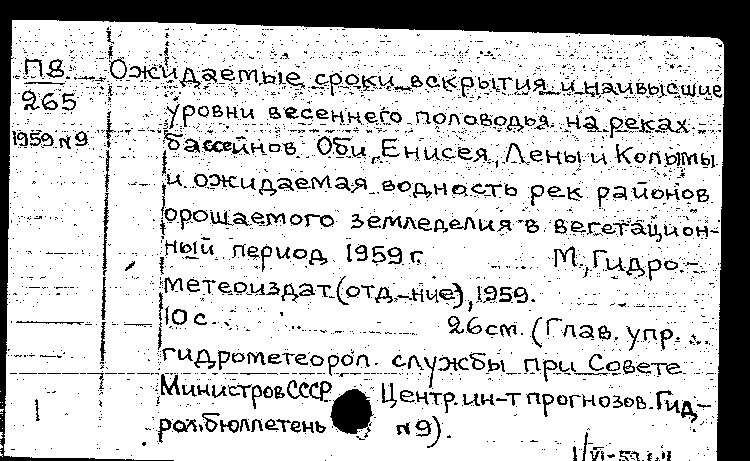 П8 Ожидаемые сроки вскрытия и наивысшие
265 уровни весеннего половодья на реках
1959 N9 бассейнов Оби, Енисея, Лены и Колымы
и ожидаемая водность рек районов
орошаемого земледелия в вегетацион-
ный период 1959 г. М., Гидро-
метеоиздат (отд-ние), 1959.
10 с. 26 см. (Глав. упр.
гидрометеорол. службы при Совете
Министров СССР Центр. ин-т прогнозов. Гид-
1 рол. бюллетень N9).